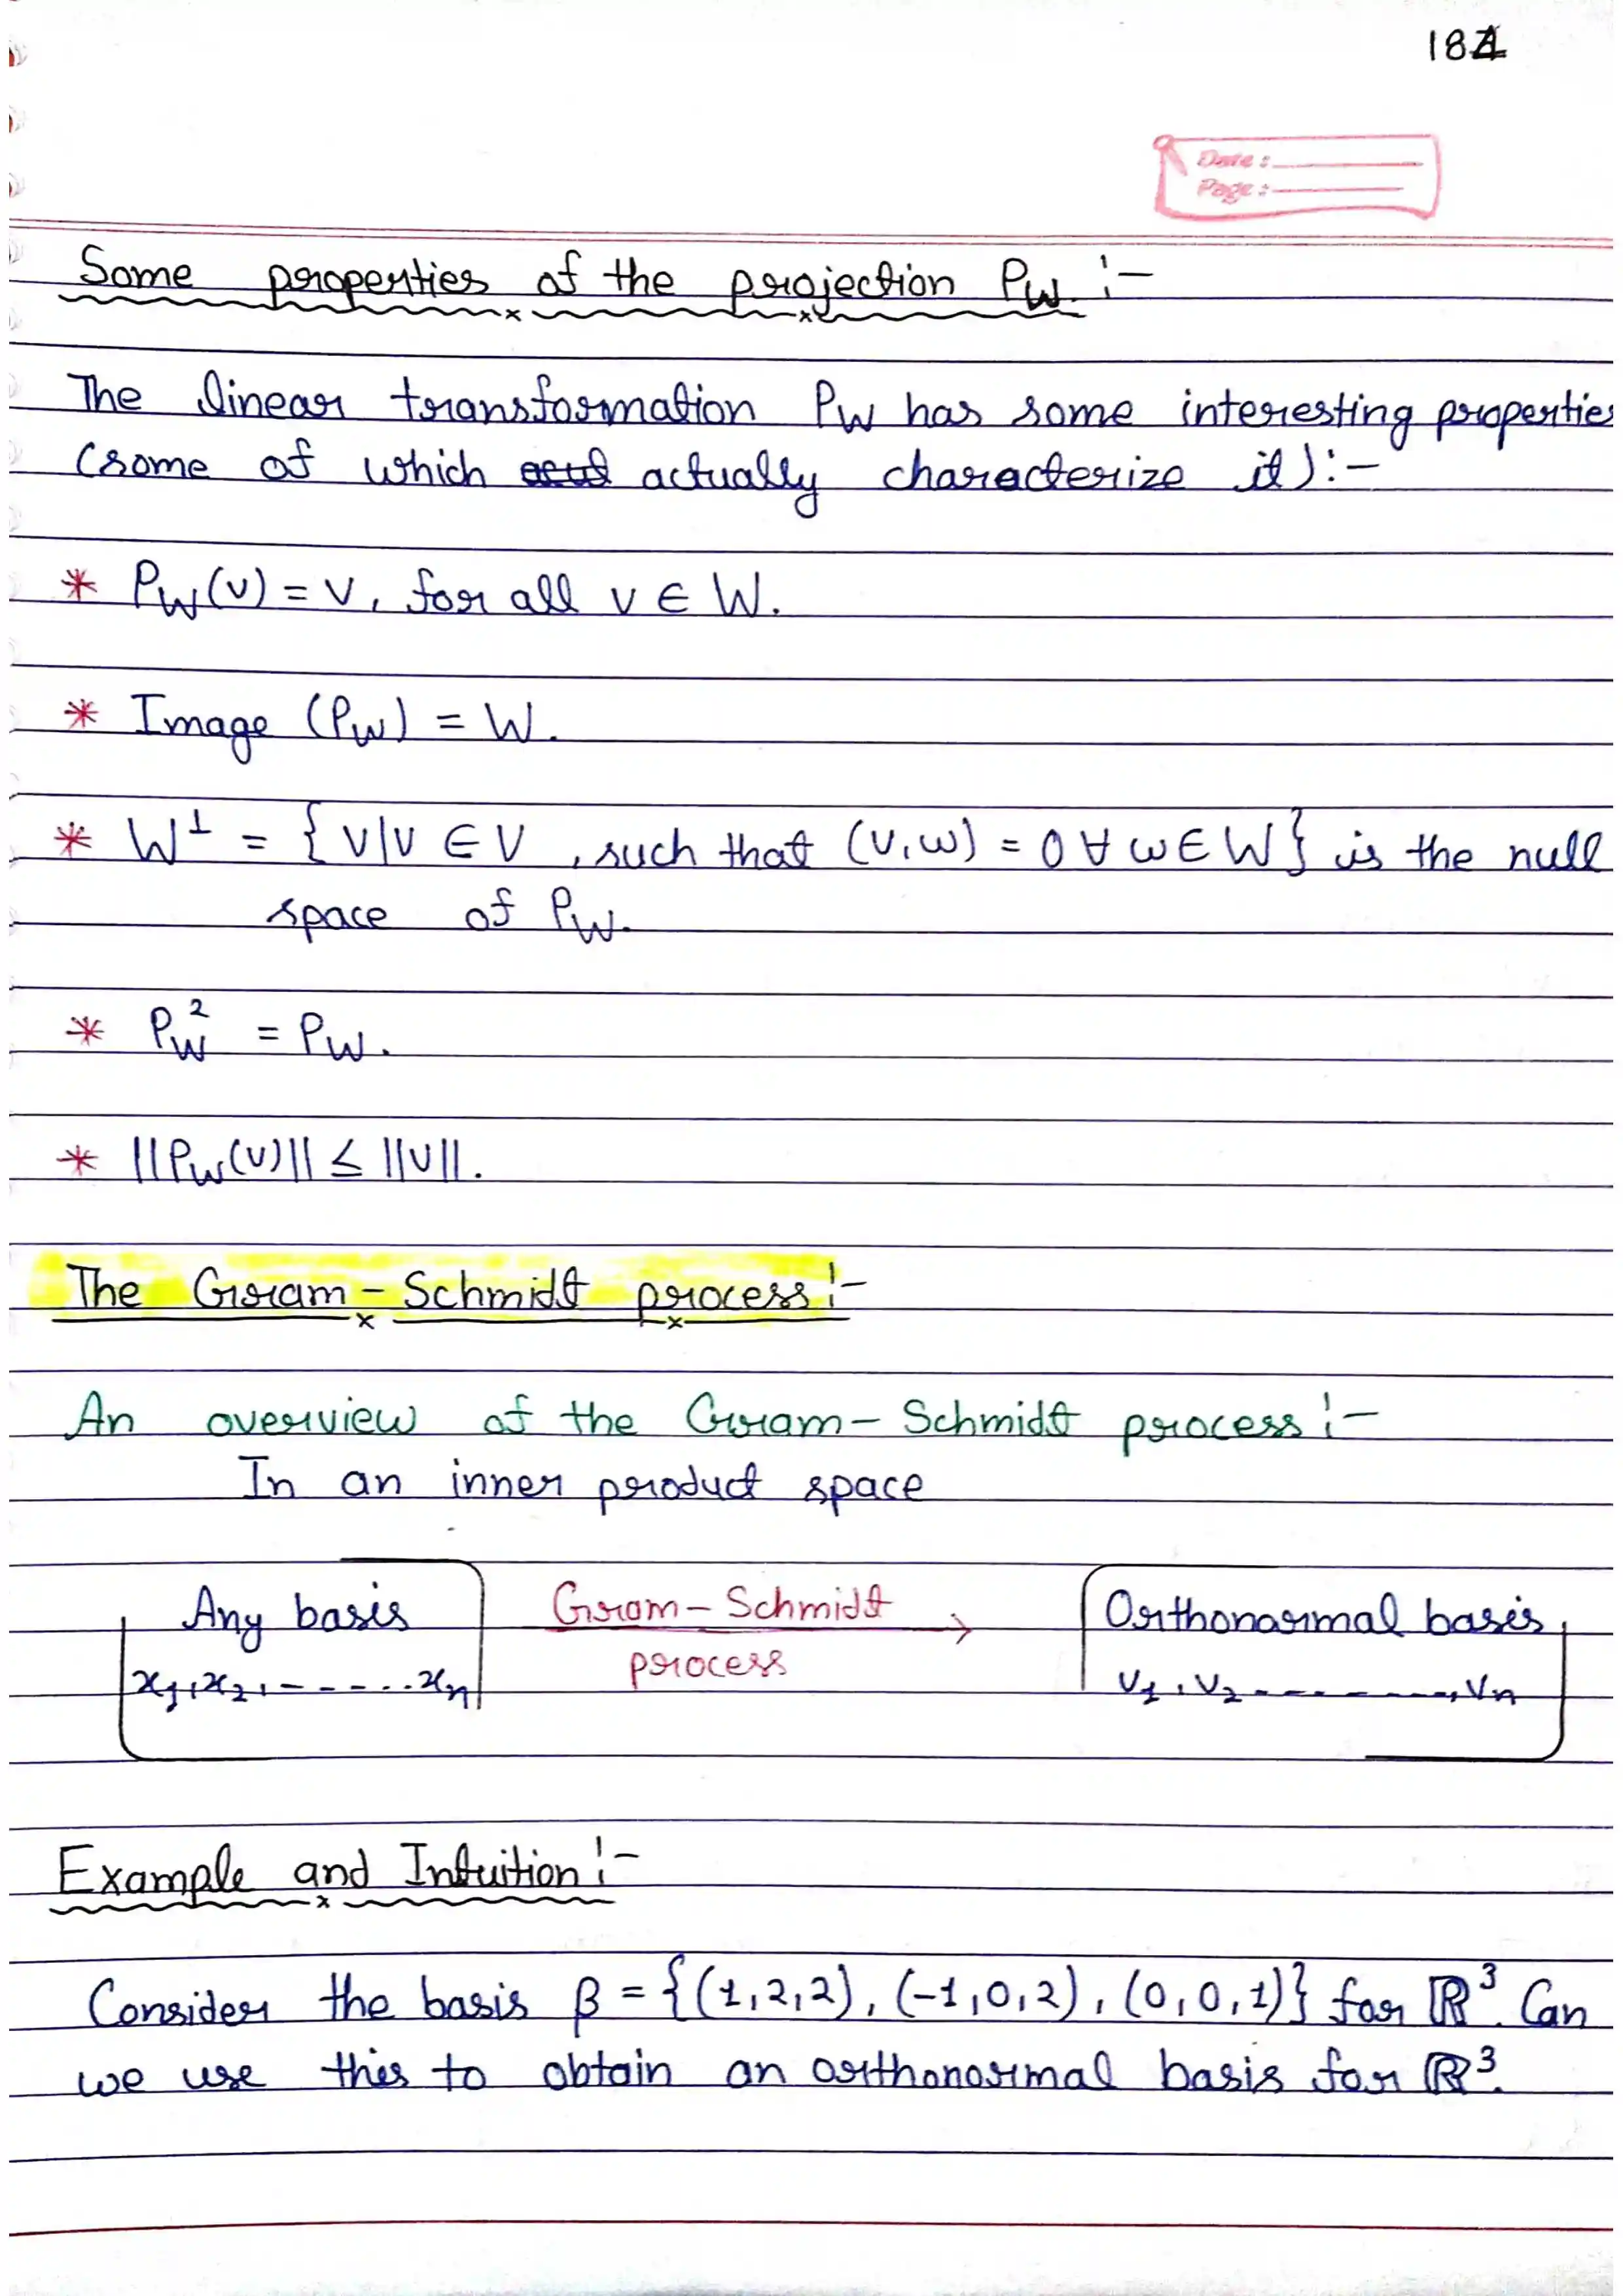 184
Date :
Page :
Some properties of the projection PW. :-
The linear transformation PW has some interesting properties
(some of which actually characterize it):-
* PW(v) = v, for all v ∈ W.
* Image (PW) = W.
* W⊥ = {v|v ∈ V, such that (v,w) = 0 ∀ w ∈ W} is the null
space of PW.
* PW² = PW.
* ||PW(v)|| ≤ ||v||.
The Gram-Schmidt process:-
An overview of the Gram-Schmidt process:-
In an inner product space
Any basis
x1,x2,-----..xn
Gram-Schmidt
process
Orthonormal basis
v1,v2--------,vn
Example and Intuition:-
Consider the basis β = {(1,2,2), (-1,0,2), (0,0,1)} for ℝ³. Can
we use this to obtain an orthonormal basis for ℝ³.